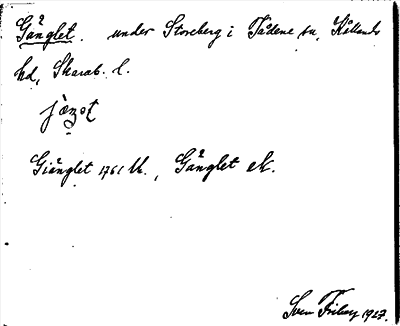 Gånglet. under Storeberg i Tådene sn, Kållands
hd, Skarab. l.
Giånglet 1761 U., Gånglet ek.
Sven Friberg 1927.